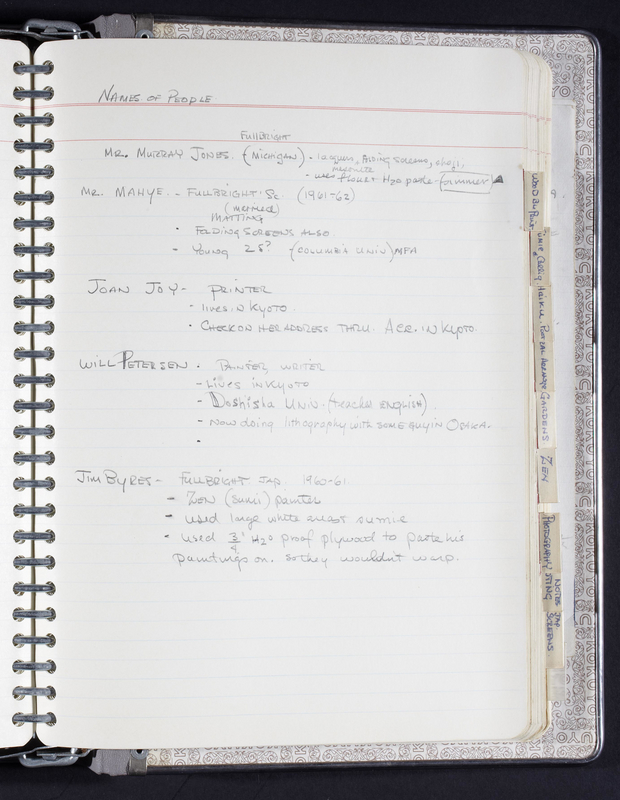 NAMES OF PEOPLE
FULLBRIGHT
MR. MURRAY JONES. (MICHIGAN) - laquers, FOLDING SCREENS, shoji,
masonite
- uses H2O paste
MR. MAHYE. - FULLBRIGHT. Sc. (1961-62)
(married)
MATTING
• FOLDING SCREENS ALSO
- YOUNG 28? (COLUMBIA UNIV) MFA
JOAN JOY - PRINTER
• lives in KYOTO.
• CHECK ON HER ADDRESS THRU. A CR. IN KYOTO.
WILL PETERSEN • PAINTER, WRITER
- Lives IN KYOTO
- Doshisha UNIV - (teaches ENGLISH).
- now doing lithography with SOME GUY IN OSAKA.
•
JIM BYRES - FULLBRIGHT JAP. 1960-61
- ZEN (sumi) painter
- used large white sumi-e
- used 3/4" H2O proof plywood to paste his
paintings on. so they wouldn't warp.
ZEN
GARDENS
PHOTOGRAPHY
NOTES JAP.
SCREENS.
KOKUYO